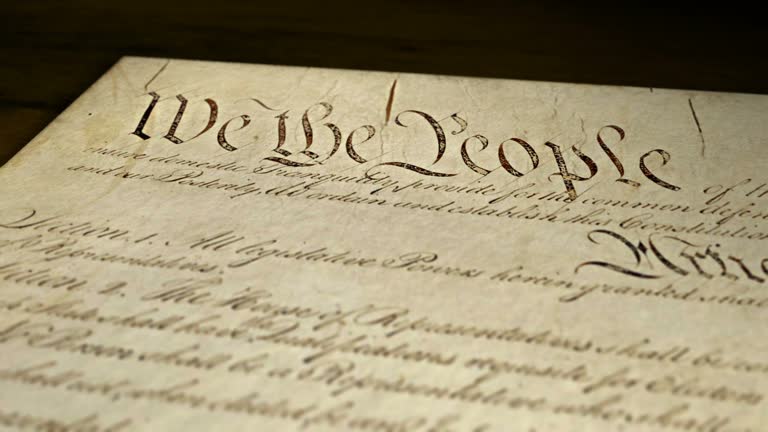 We the People of the
insure domestic Tranquility, provide for the common defence
and our Posterity, do ordain and establish this Constitution
Article
Section. 1. All legislative Powers herein granted shall
of Representatives.
Section. 2. The House of Representatives shall be
State shall have Qualifications requisite for Electors
No Person shall be a Representative who shall